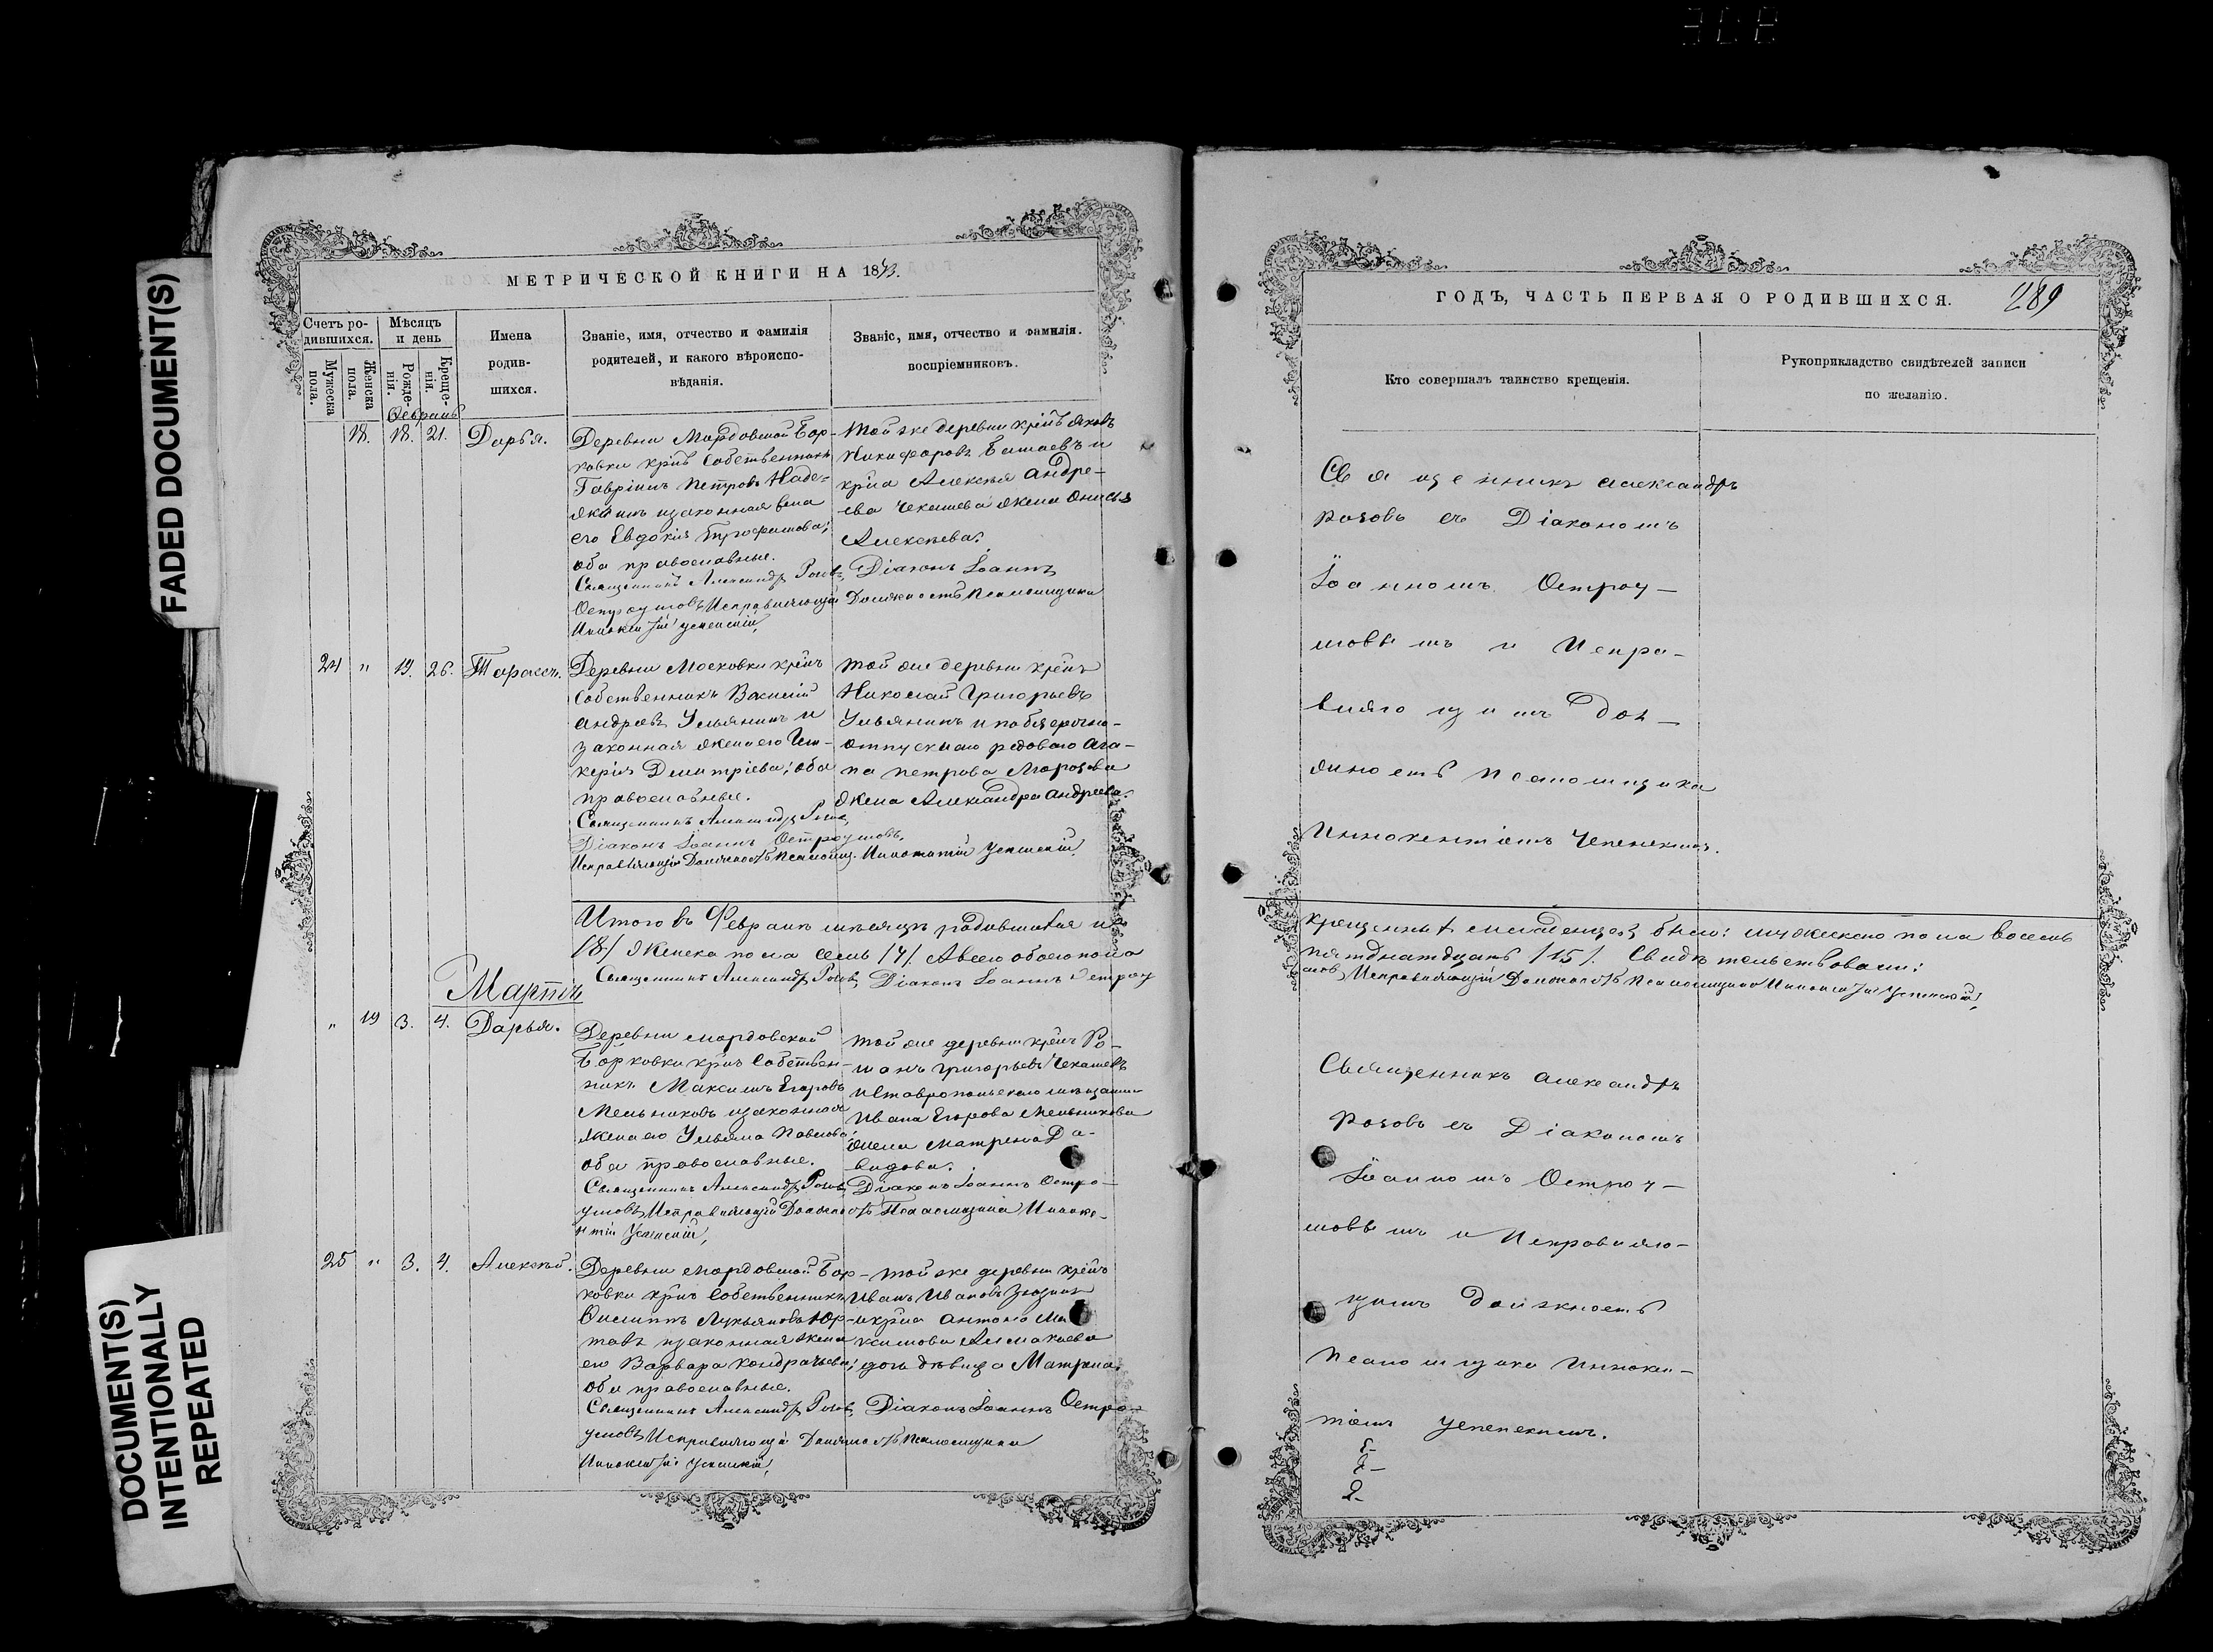 FADED DOCUMENT(S)
DOCUMENT(S)
INTENTIONALLY
REPEATED
МЕТРИЧЕСКОЙ КНИГИ НА 1873.
Счетъ ро-
дившихся.
Мужеска
пола.
Женска
пола.
Мѣсяцъ
и день
Рожде-
нія.
Креще-
нія.
Имена
родив-
шихся.
Званіе, имя, отчество и фамилія
родителей, и какого вѣроиспо-
вѣданія.
Званіе, имя, отчество и фамилія.
воспріемниковъ.
Февраль
18. 18. 21. Дарья.
Деревни Мордовской Бор-
ковки крнъ Собственникъ
Гавріилъ Петровъ
и законная жена
его Евдокія Трофимова;
оба православные.
Священникъ Александръ Розовъ,
Остроумовъ, Исправляющій
Иннокентій Успенскій,
Той же деревни крнъ Яковъ
Никифоровъ и
крна Алексѣя Андре-
ева Чекашева жена Онисья
Алексѣева.
Діаконъ Іоаннъ
Должность Псаломщика
24 " 19. 26. Тарасій.
Деревни Московки крнъ
Собственникъ Василій
Андреевъ Ульянинъ и
законная жена его Гли-
керія Димитріева; оба
православные.
Священникъ Александръ Розовъ,
Діаконъ Іоаннъ Остроумовъ,
Исправляющій Должность Псаломщ. Иннокентій Успенскій,
той же деревни крнъ
Николай Григорьевъ
Ульянинъ и
отпускнаго рядоваго Ага-
па Петрова Морозова
жена Александра Андреева.
Итого въ Февралѣ мѣсяцѣ родившихся и
/8/ Женска пола семь /7/. А всего обоего пола
Священникъ Александръ Розовъ, Діаконъ Іоаннъ Остроу
Мартъ
" 19 3. 4. Дарья.
Деревни мордовской
Борковки крнъ Собствен-
никъ Максимъ Егоровъ
Мельниковъ и законная
жена его Ульяна Павлова;
оба православные.
Священникъ Александръ Розовъ,
умовъ, Исправляющій Должность Псаломщика Иннокен-
нтій Успенскій,
той же деревни крнъ Ро-
манъ Григорьевъ Чекашевъ
и Ставропольскаго мѣщанина
Ивана Егорова Мельникова
жена Матрена Да-
видова.
Діаконъ Іоаннъ Остро-
25 " 3. 4. Алексѣй.
Деревни мордовской Бор-
ковки крнъ Собственникъ
Филиппъ Лукьяновъ Юр-
таевъ и законная жена
его Варвара Кондратьева;
оба православные.
Священникъ Александръ Розовъ,
умовъ, Исправляющій Должность Псаломщика
Иннокентій Успенскій,
той же деревни крнъ
Иванъ Ивановъ
и крна Антона Ма
ксимова
дочь дѣвица Матрена.
Діаконъ Іоаннъ Остро-
ГОДЪ, ЧАСТЬ ПЕРВАЯ О РОДИВШИХСЯ.
289
Кто совершалъ таинство крещенія.
Рукоприкладство свидѣтелей записи
по желанію.
Священникъ Александръ
Розовъ съ Діакономъ
Іоанномъ Остроу-
мовымъ и Испра-
вляющимъ Дол-
жность Псаломщика
Иннокентіемъ Успенскимъ.
крещенныхъ младенцевъ было: мужескаго пола восемь
пятнадцать /15/. Свидѣтельствовали:
мовъ, Исправляющій Должность Псаломщика Иннокентій Успенскій,
Священникъ Александръ
Розовъ съ Діакономъ
Іоанномъ Остроу-
мовымъ и Исправляю-
щимъ Должность
Псаломщика Иннокен-
тіемъ Успенскимъ.